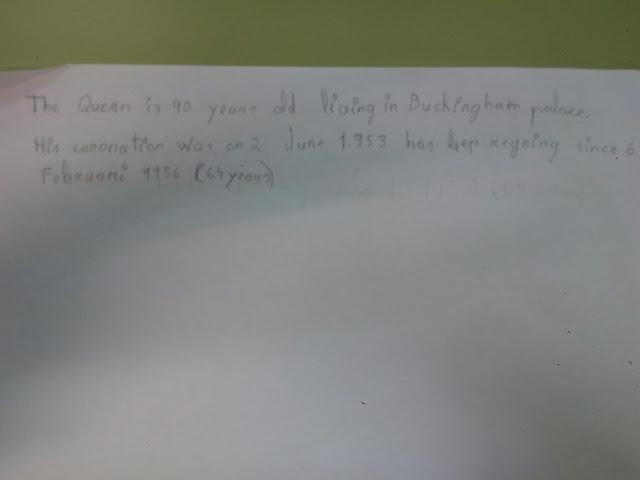 The Queen is 90 years old living in Buckingham palace.
His coronation was on 2 June 1.953 has kep regning since 6
Februari 1956 (64 years)